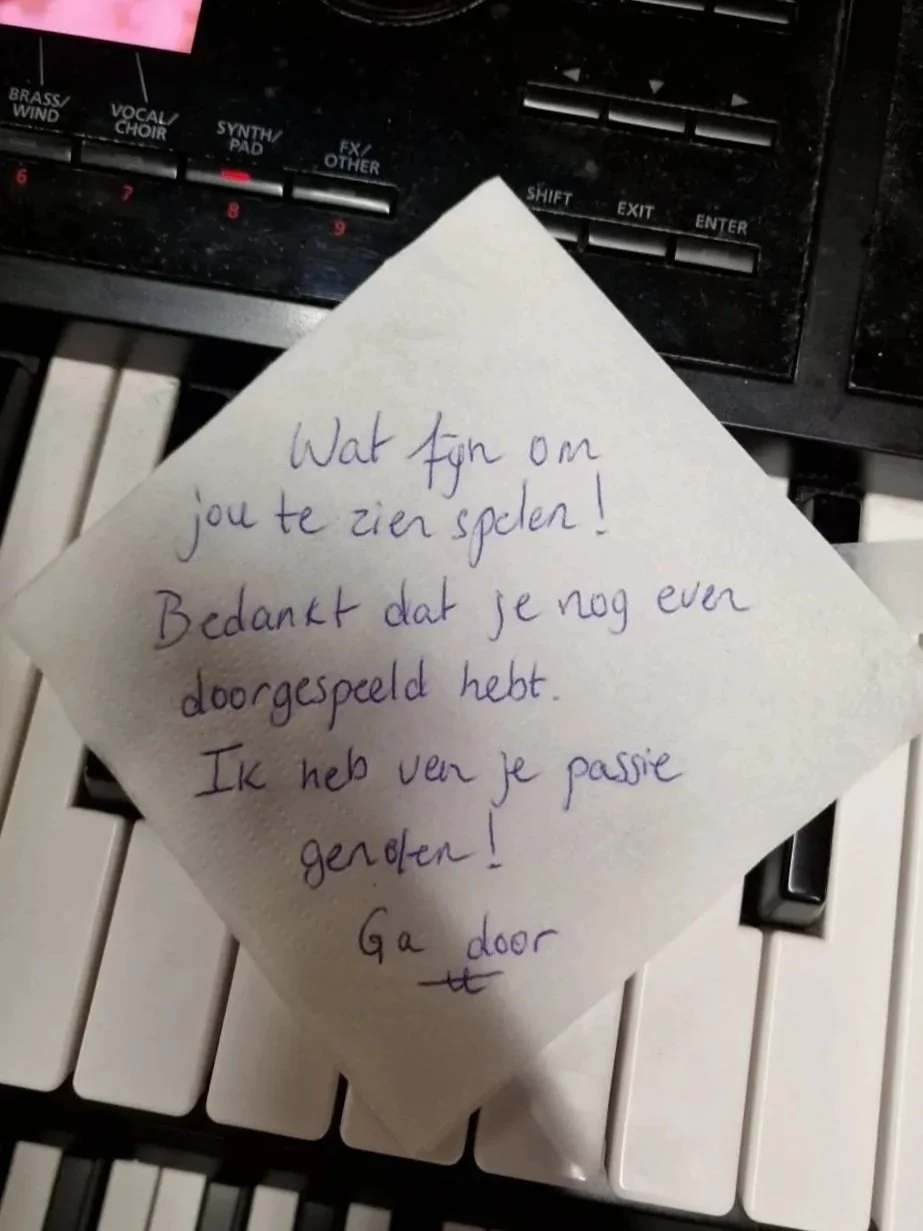 BRASS/
WIND
VOCAL/
CHOIR
SYNTH/
PAD
FX/
OTHER
6
7
8
9
SHIFT
EXIT
ENTER
Wat fijn om
jou te zien spelen!
Bedankt dat je nog even
doorgespeeld hebt.
Ik heb van je passie
genoten!
Ga door